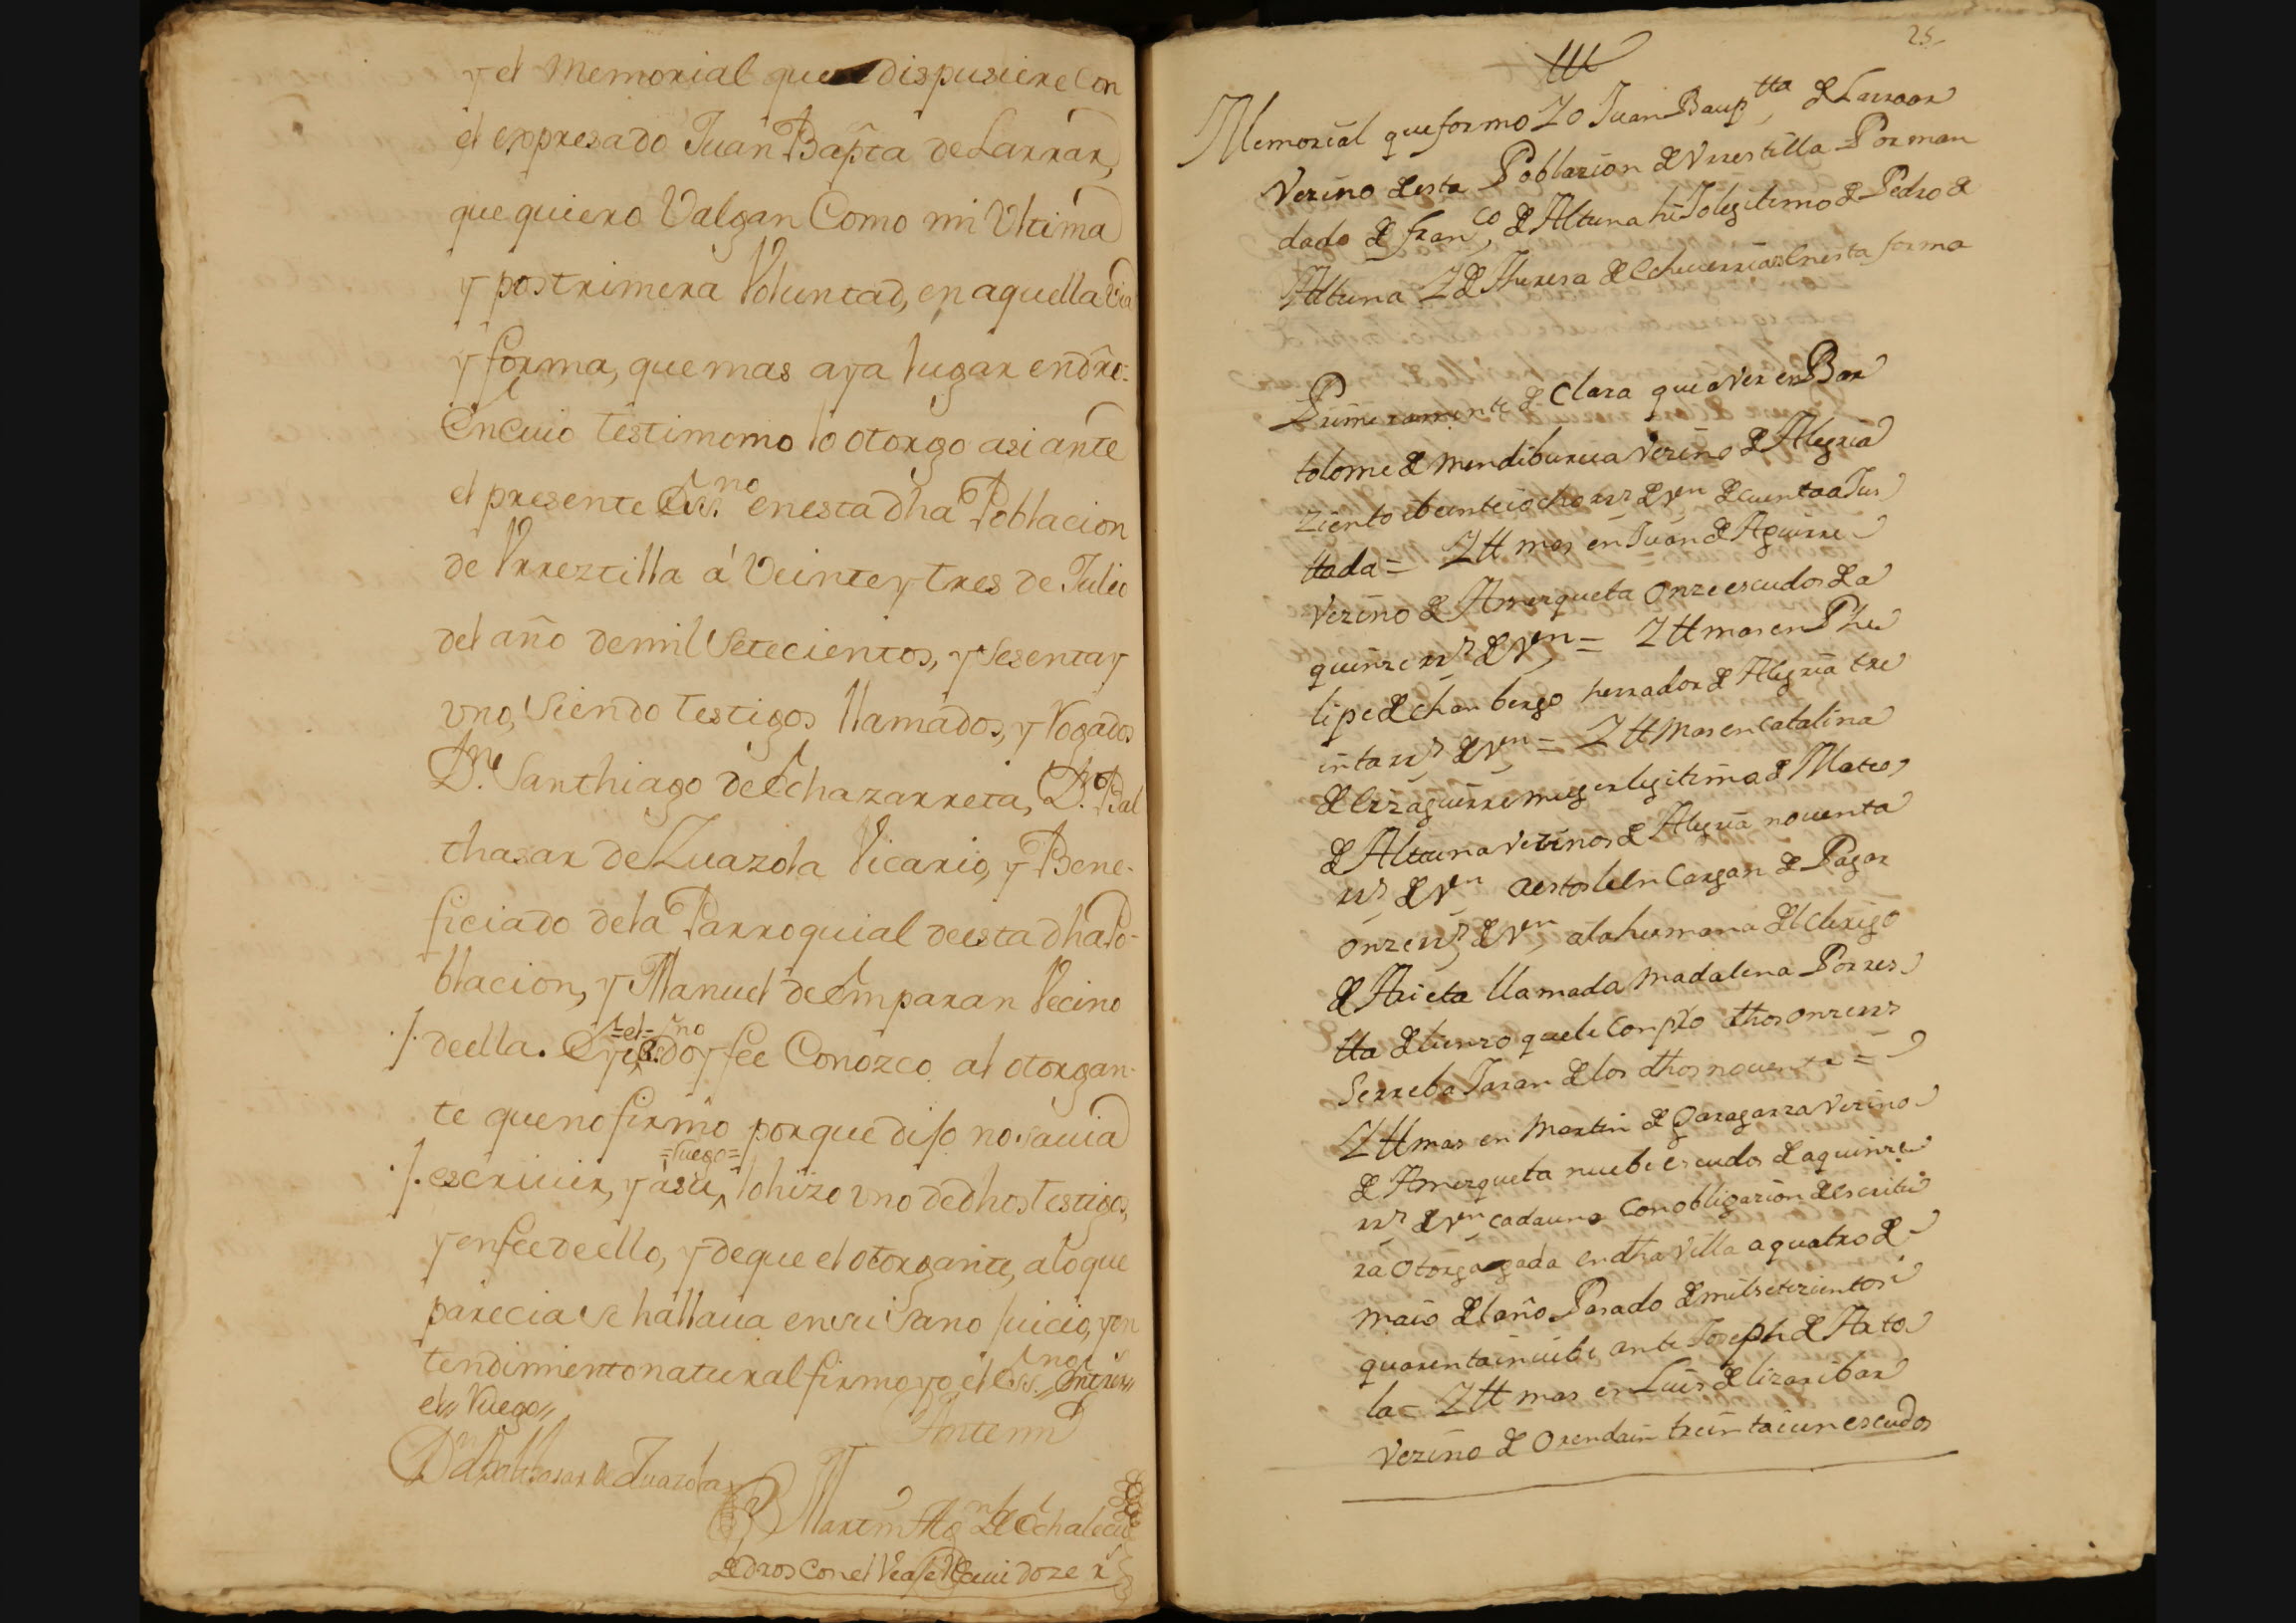 y el Memorial que dispusiere Con
el expresado Juan Bapta de Larrar,
que quiero Valgan Como mi Ultima
y postrimera Voluntad, en aquella via
y forma, que mas aya lugar en dro.
En Cuio testimonio lo otorgo asi ante
el presente Ess.no en esta dha Poblacion
de Vrreztilla á Veinte y tres de Julio
del año de mil Setecientos, y Sesenta y
vno, Siendo testigos llamados, y Rogados
Dn. Santhiago de Echazarreta, Dn. Bal
thasar de Zuazola Vicario, y Bene-
ficiado de la Parroquial de esta dha Po-
blacion, y Manuel de Emparan Vecino
de ella. E yo =el= Ess.no doy fee Conozco al otorgan-
te que no firmó porque dijo no savia
escriuir, y a su =ruego= lo hizo vno de dhos testigos,
y en fee de ello, y de que el otorgante, a lo que
parecia se hallaua en su Sano Juicio, y en
tendimiento natural firmo yo el Ess.no Entrers
el Ruego
Ante mi
Dn Balthasar de Zuazola
Martin Agn de Echalecu
Dros Con el
25
Memorial que formo Yo Juan Bauptta de Larraar
Vezino de esta Poblazion de Vrrestilla Por man
dado de franco de Altuna hiJo legitimo de Pedro de
Altuna Y de Theresa de Echeuerria en esta forma
Primeramente de Clara que aver en Bar
tolome de Mendiburua Vezino de Alegria
Ziento ibeinteiocho rrs de Vn de cuenta aJus
ttada = Ytt mas en Juan de Aguirre
Vezino de Amezqueta Onze escudos de a
quinze rrs de Vn = Ytt mas en Phe
lipe de Chamberga herrador de Alegria tre
inta rrs de Vn = Ytt mas en Catalina
de Eizaguirre muger legitima de Mateo
de Altuna Vezinos de Alegria nouenta
rrs de Vn a estos le en Cargan de Pagar
onze rrs de Vn a la hermana del Clerigo
de Arieta llamada Madalena Porres
tta de lienzo que le Conpro dhos onze rrs
Serreba Jaran de los dhos nouenta =
Ytt mas en Martin de Garagarza Vezino
de Amezqueta nuebe escudos de a quinze
rrs de Vn cada uno Con obligazion de escritu
ra Otorgagada en dha Villa a quatro de
maio del año Pasado de mil setezientos i
quarentainuebe ante Joseph de Arto
la = Ytt mas en Luis de lizaribar
Vezino de Orendain treintaiun escudos